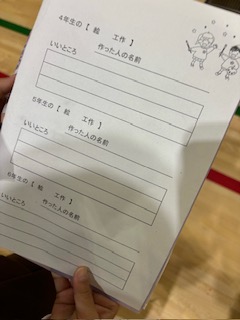 4年生の【 絵　工作 】
いいところ　作った人の名前
5年生の【 絵　工作 】
いいところ　作った人の名前
6年生の【 絵　工作 】
いいところ　作った人の名前